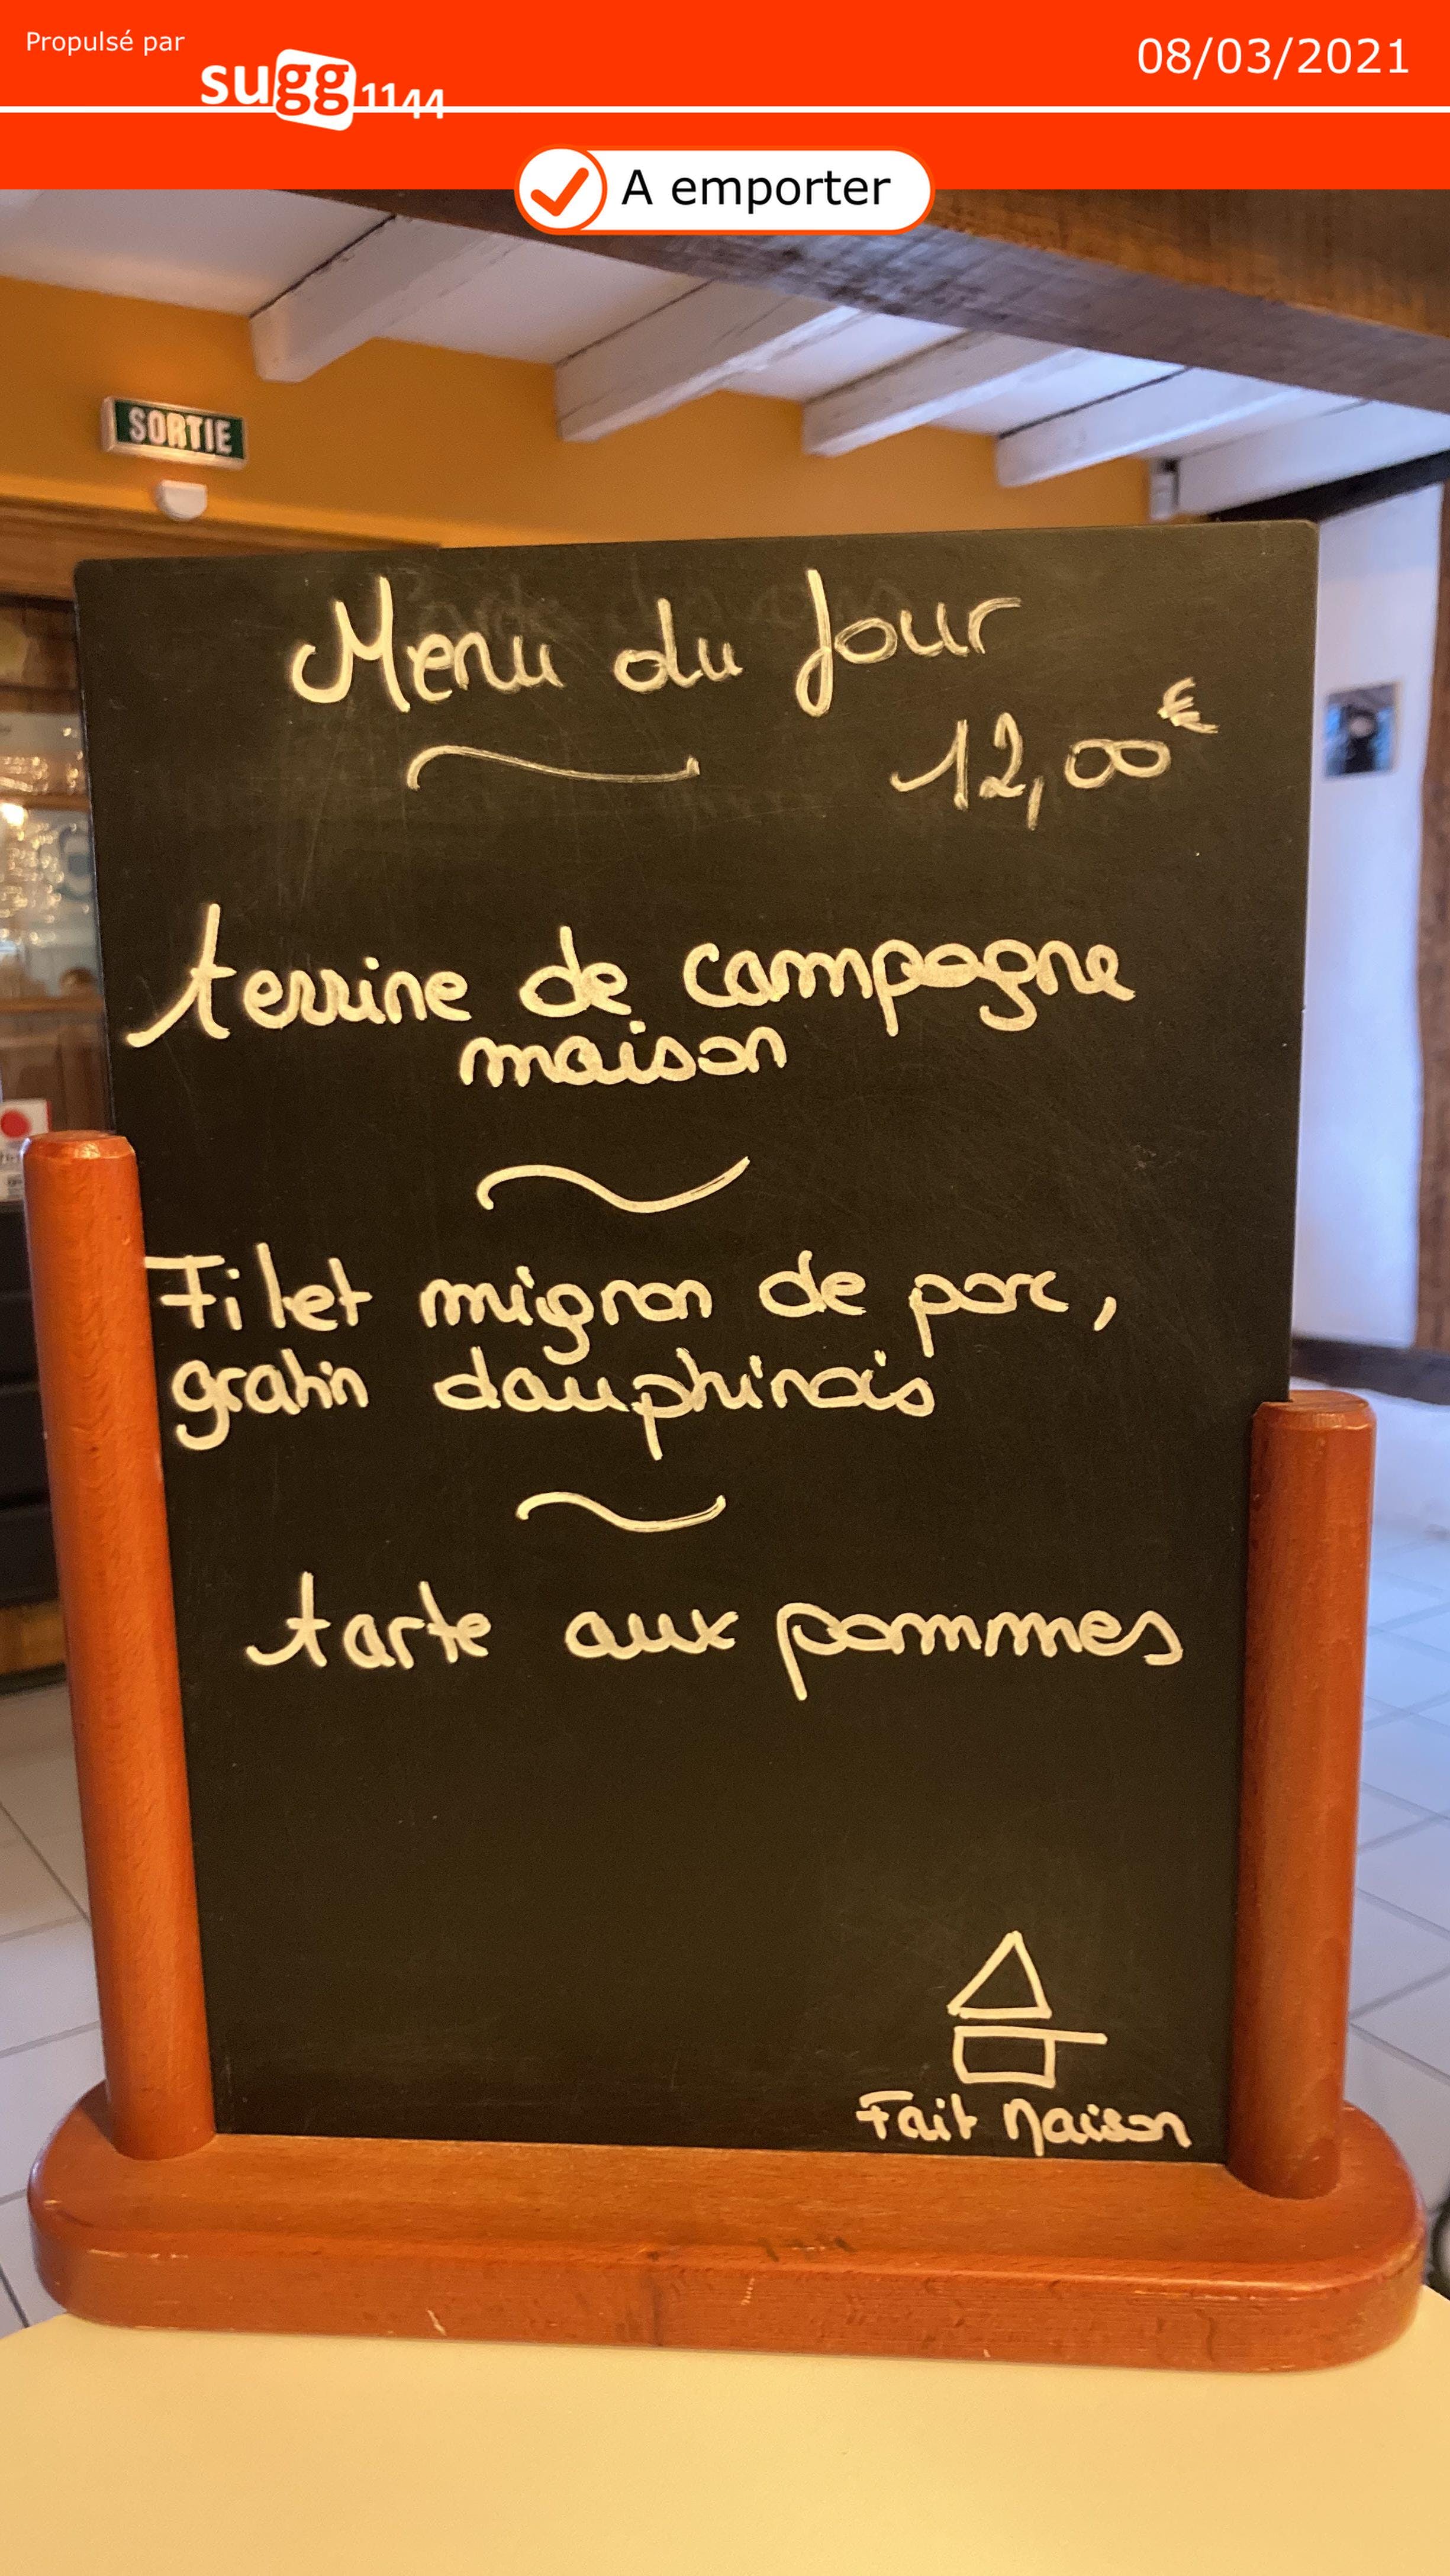 Propulsé par
sugg1144
08/03/2021
A emporter
SORTIE
Menu du Jour
12,00€
terrine de campagne
maison
Filet mignon de porc,
gratin dauphinois
tarte aux pommes
Fait Maison